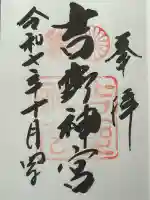 奉拝
吉野神宮
令和七年十月四日